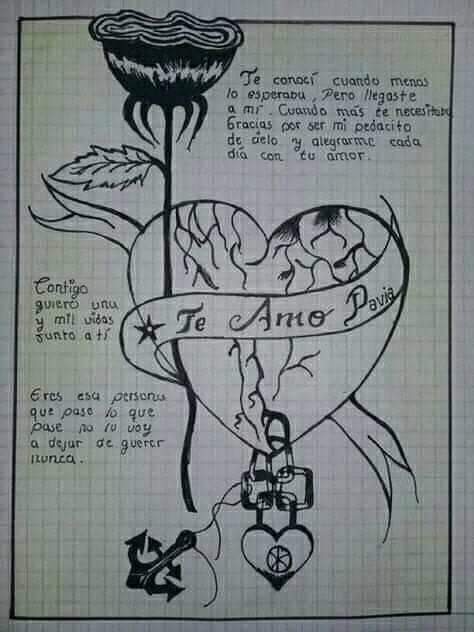 Te conocí cuando menos
lo esperaba, Pero llegaste
a mí. Cuando más te necesitaba
Gracias por ser mi pedacito
de cielo y alegrarme cada
día con tu amor.
Contigo
quiero una
y mil vidas
junto a tí
Te Amo Pavia
Eres esa persona
que pase lo que
pase no tu voy
a dejar de querer
nunca.